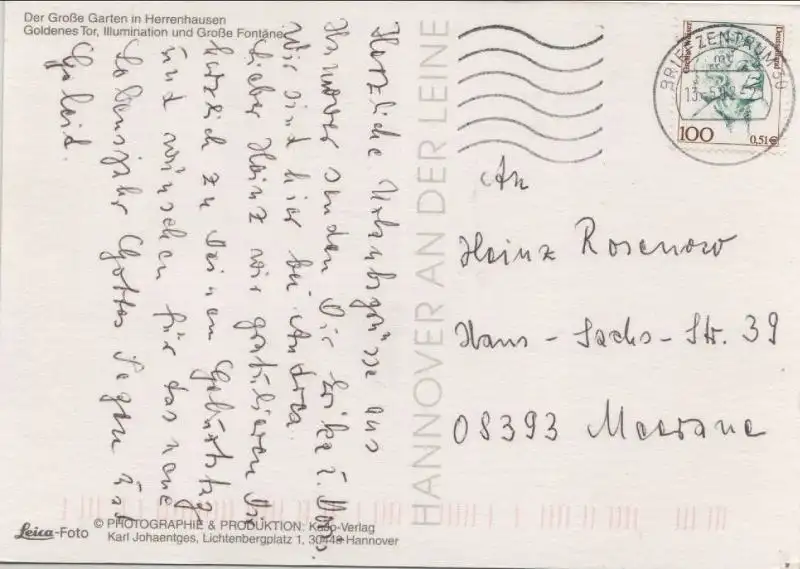 Der Große Garten in Herrenhausen
Goldenes Tor, Illumination und Große Fontäne
Herzliche Urlaubsgrüsse aus
Hannover senden Dir Erika u. Hans.
Wir sind hier bei Andrea.
Lieber Heinz wir gratulieren Dir
herzlich zu Deinem Geburtstag
und wünschen für das neue
Lebensjahr Gottes Segen und
Geleit.
HANNOVER AN DER LEINE
BRIEFZENTRUM 30
Deutschland
100
0,51€
An
Heinz Rosenow
Hans-Sachs-Str. 39
08393 Meerane
Leica-Foto
© PHOTOGRAPHIE & PRODUKTION: KaJo-Verlag
Karl Johaentges, Lichtenbergplatz 1, 30449 Hannover